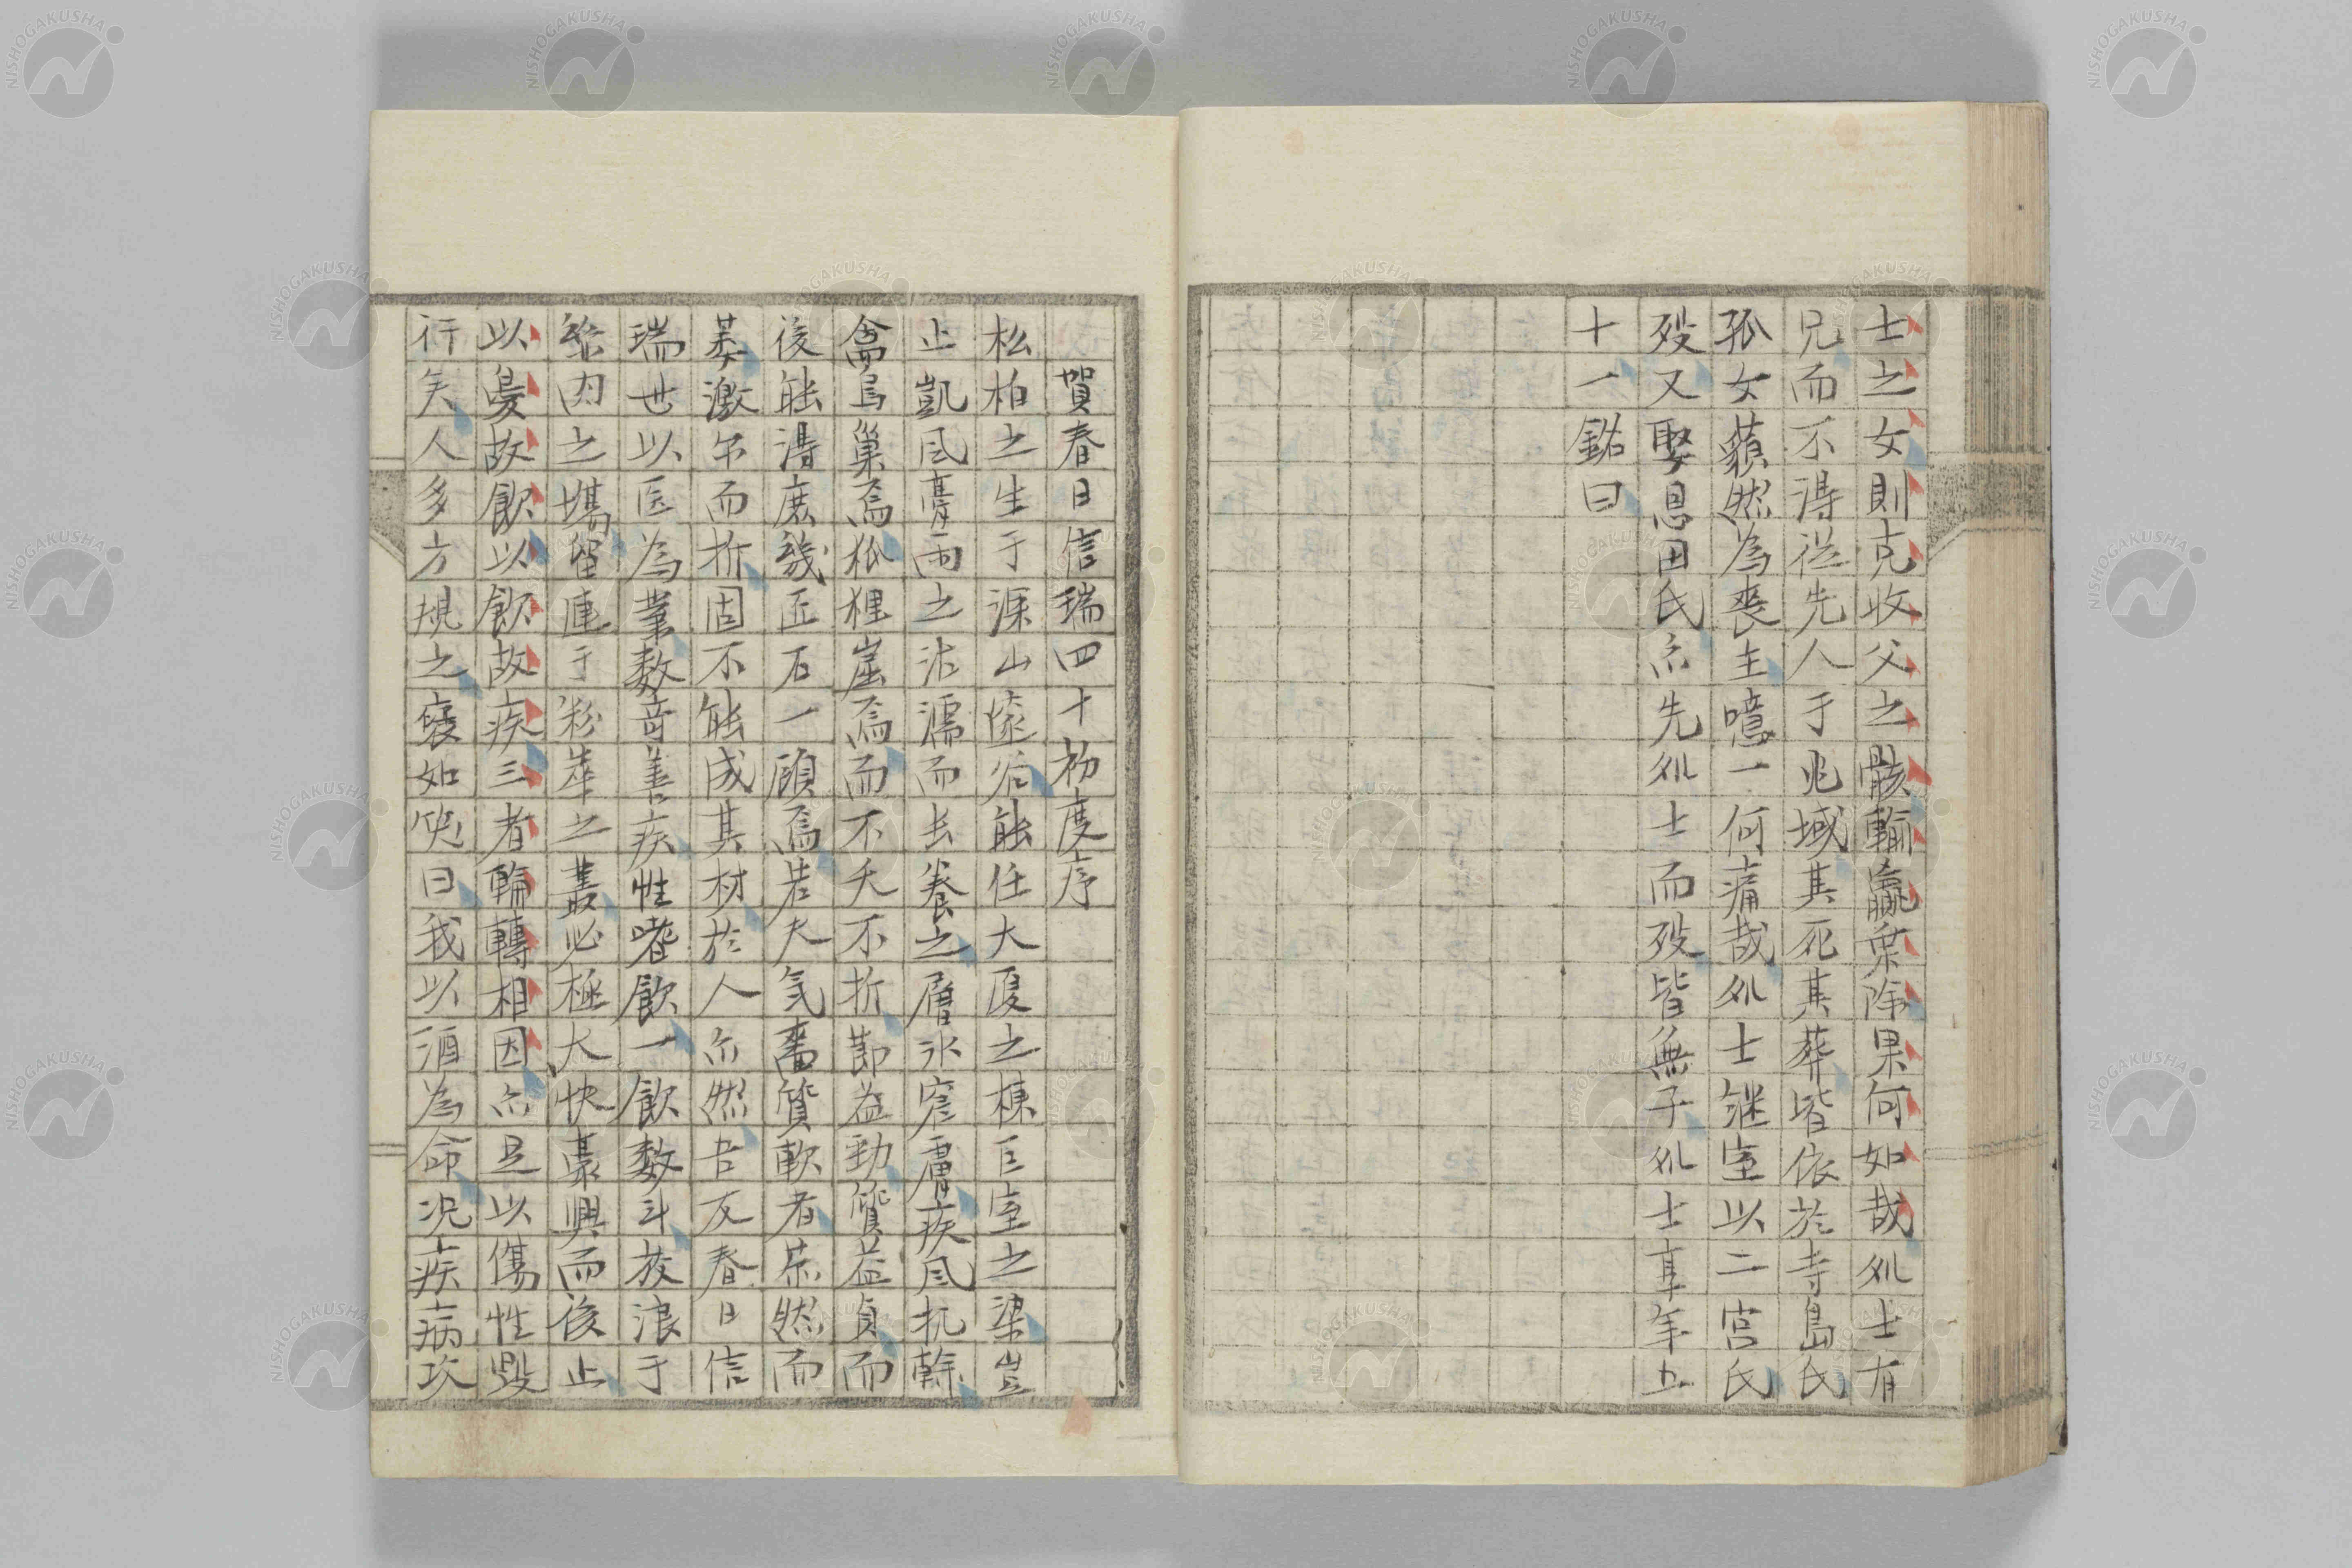 士之女則克收父之骸輸贏乘除果何如哉処士有
兄而不得從先人于兆域其死其葬皆依於寺島氏
孤女藐然為喪主噫一何痛哉処士継室以二宮氏
歿又娶恩田氏亦先処士而歿皆無子処士享年五
十一銘曰
賀春日信瑞四十初度序
松柏之生于深山邃谷能任大廈之棟巨室之梁豈
止凱风膏雨之沾濡而長養之層氷窮膚疾风抗幹
禽鳥巢焉狐狸崫焉而不夭不折節益勁質益貞而
後能得庶幾匠石一顧焉若夫気啬質軟者苶然而
萎激尓而折固不能成其材於人亦然吾友春日信
瑞世以医為業数奇善疾性嗜飲一飲数斗放浪于
紫肉之場留連于粉華之叢必極大快藁興而後止
以憂故飲以飲故疾三者輪轉相因亦足以傷性毀
行矣人多方規之褎如笑曰我以酒為命况疾病坎